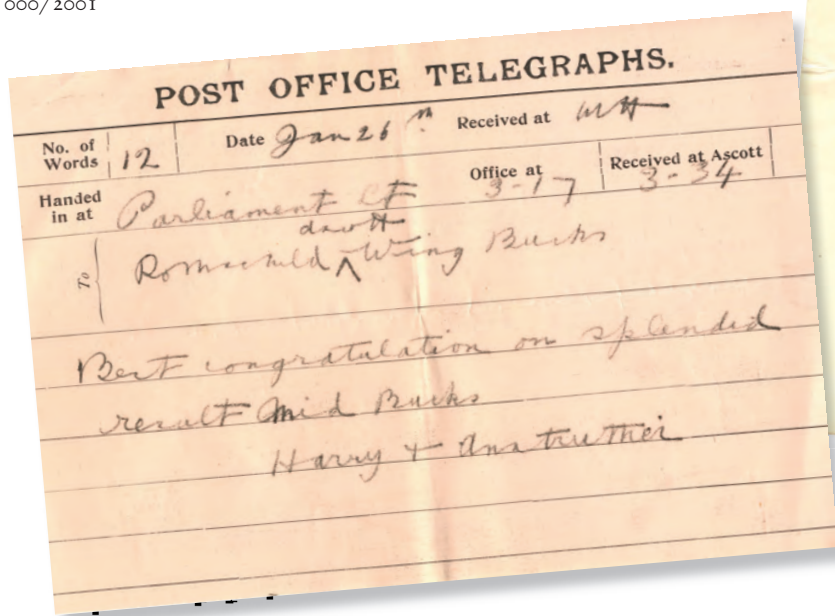 000/2001
POST OFFICE TELEGRAPHS.
No. of Words 12 Date Jan 26 Received at
Handed in at Parliament St Office at 3-17 Received at Ascott 3-34
To Rothschild ^ Wing Bucks
Best congratulation on splendid
result Mid Bucks
Harry + Anstruther